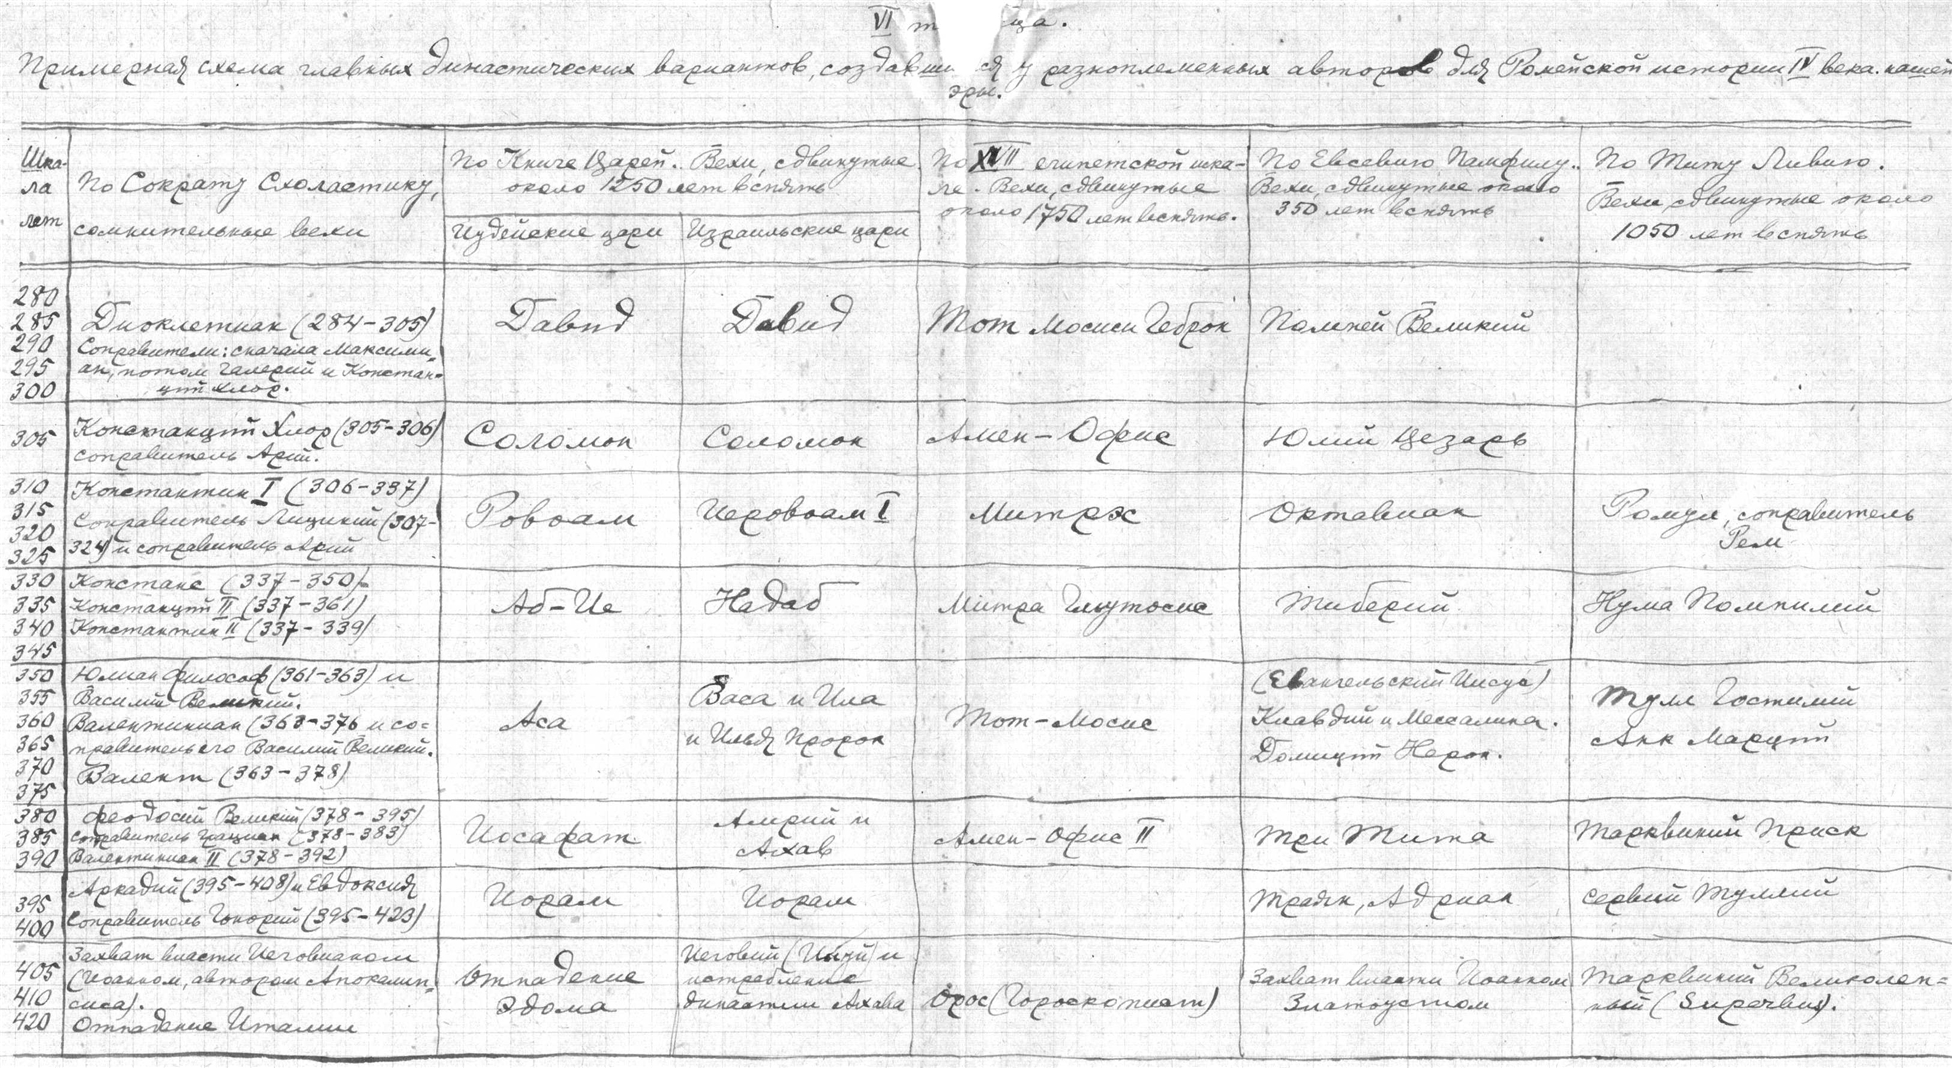 VI т ца.
Примерная схема главных династических вариантов, создавши ся у разноплеменных авторов для Ромейской истории IV века нашей
эры.
Шка-
ла
лет
По Сократу Схоластику,
сомнительные вехи
По Книге Царей. Вехи, сдвинутые
около 1250 лет вспять
Иудейские цари
Израильские цари
По XVII египетской шка-
ле. Вехи, сдвинутые
около 1750 лет вспять.
По Евсевию Памфилу.
Вехи, сдвинутые около
350 лет вспять
По Титу Ливию.
Вехи, сдвинутые около
1050 лет вспять
280
285
290
295
300
Диоклетиан (284-305)
Соправители: сначала Максими-
ан, потом Галерий и Констан-
ций Хлор.
Давид
Давид
Тот Мосиси Геброн
Помпей Великий
305
Констанций Хлор (305-306)
соправитель Арий.
Соломон
Соломон
Амен-Офис
Юлий Цезарь
310
315
320
325
Константин I (306-337)
Соправитель Лициний (307-
324) и соправитель Арий
Ровоам
Иеровоам I
Митрэс
Октавиан
Ромул, соправитель
Рем
330
335
340
345
Констанс (337-350)
Констанций II (337-361)
Константин II (337-339)
Аб-Ие
Надаб
Митра Глутосис
Тиберий
Нума Помпилий
350
355
360
365
370
375
Юлиан философ (361-363) и
Василий Великий.
Валентиниан (363-376 и со-
правитель его Василий Великий.
Валент (363-378)
Аса
Васа и Ила
и Илья пророк
Тот-Мосис
(Евангельский Иисус)
Клавдий и Мессалина.
Домиций Нерон.
Тулл Гостилий
Анк Марций
380
385
390
Феодосий Великий (378-395)
Соправитель Грациан (378-383)
Валентиниан II (378-392)
Иосафат
Амврий и
Ахав
Амен-Офис II
Три Тита
Тарквиний Приск
395
400
Аркадий (395-408) и Евдоксия
Соправитель Гонорий (395-423)
Иорам
Иорам
Траян, Адриан
Сервий Туллий
405
410
420
Захват власти Иеговианом
(Иоанном, автором Апокалип-
сиса).
Отпадение Италии
Отпадение
Эдома
Иеговий (Ииуй) и
истребление
династии Ахава
Орос (Гороскопист)
Захват власти Иоанном
Златоустом
Тарквиний Великолеп-
ный (Superbus).